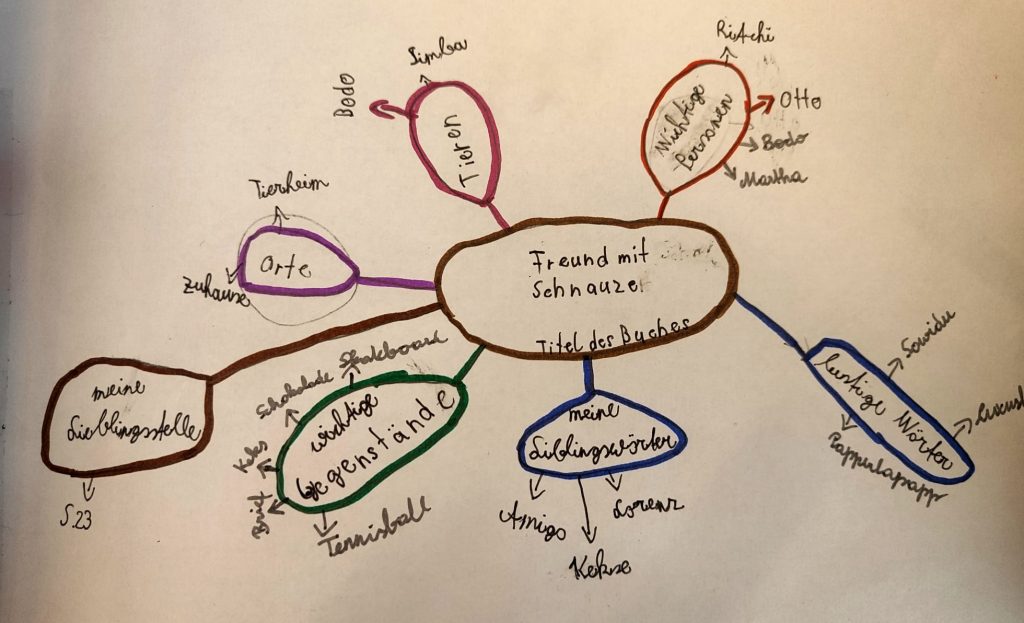 Freund mit
Schnauze
Titel des Buches
Tieren
Simba
Bodo
Wichtige
Personen
Ritchi
Otto
Bodo
Martha
Orte
Tierheim
Zuhause
meine
Lieblingsstelle
S. 23
wichtige
Gegenstände
Skateboard
Schokolade
Keks
Brief
Tennisball
meine
Lieblingswörter
Amigo
Kekse
Lorenz
lustige Wörter
Papperlapapp